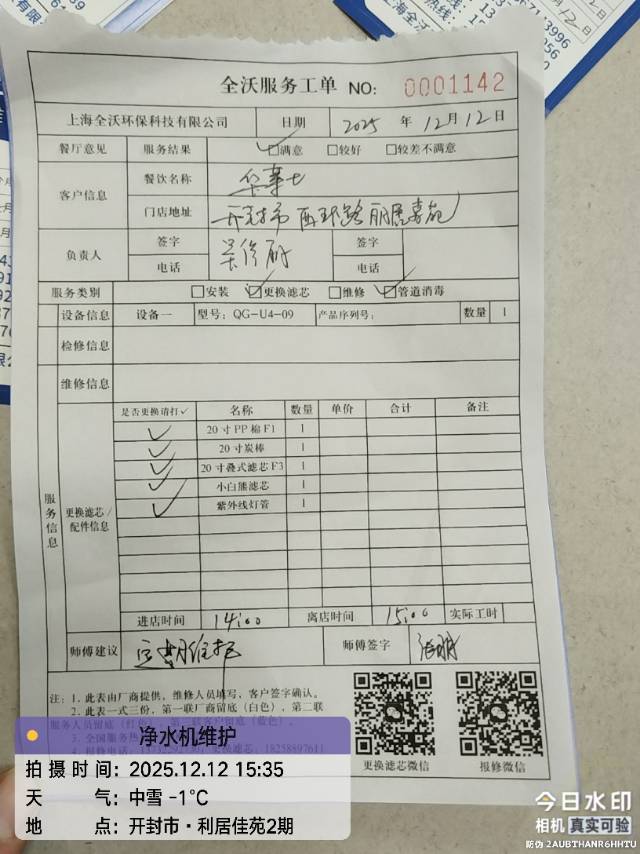 全沃服务工单 NO: 0001142
上海全沃环保科技有限公司 日期 2025 年 12月 12日
餐厅意见 服务结果 ☑满意 □较好 □较差不满意
客户信息 餐饮名称 华莱士
门店地址 开封市西环路丽居嘉苑
负责人 签字 签字
电话 电话
服务类别 □安装 ☑更换滤芯 □维修 ☑管道消毒
设备信息 设备一 型号: QG-U4-09 产品序列号: 数量 1
检修信息
维修信息
服务信息 更换滤芯/配件信息
是否更换请打✓ 名称 数量 单价 合计 备注
✓ 20寸PP棉F1 1
✓ 20寸炭棒 1
✓ 20寸叠式滤芯F3 1
✓ 小白熊滤芯 1
✓ 紫外线灯管 1
进店时间 14:00 离店时间 15:00 实际工时
师傅建议 定期维护 师傅签字
注: 1. 此表由厂商提供, 维修人员填写, 客户签字确认。
2. 此表一式三份, 第一联厂商留底(白色), 第二联
更换滤芯微信 报修微信
净水机维护
拍摄时间: 2025.12.12 15:35
天气: 中雪 -1℃
地点: 开封市·利居佳苑2期
今日水印
相机 真实可验
防伪 2AUBTHANR6HHTU